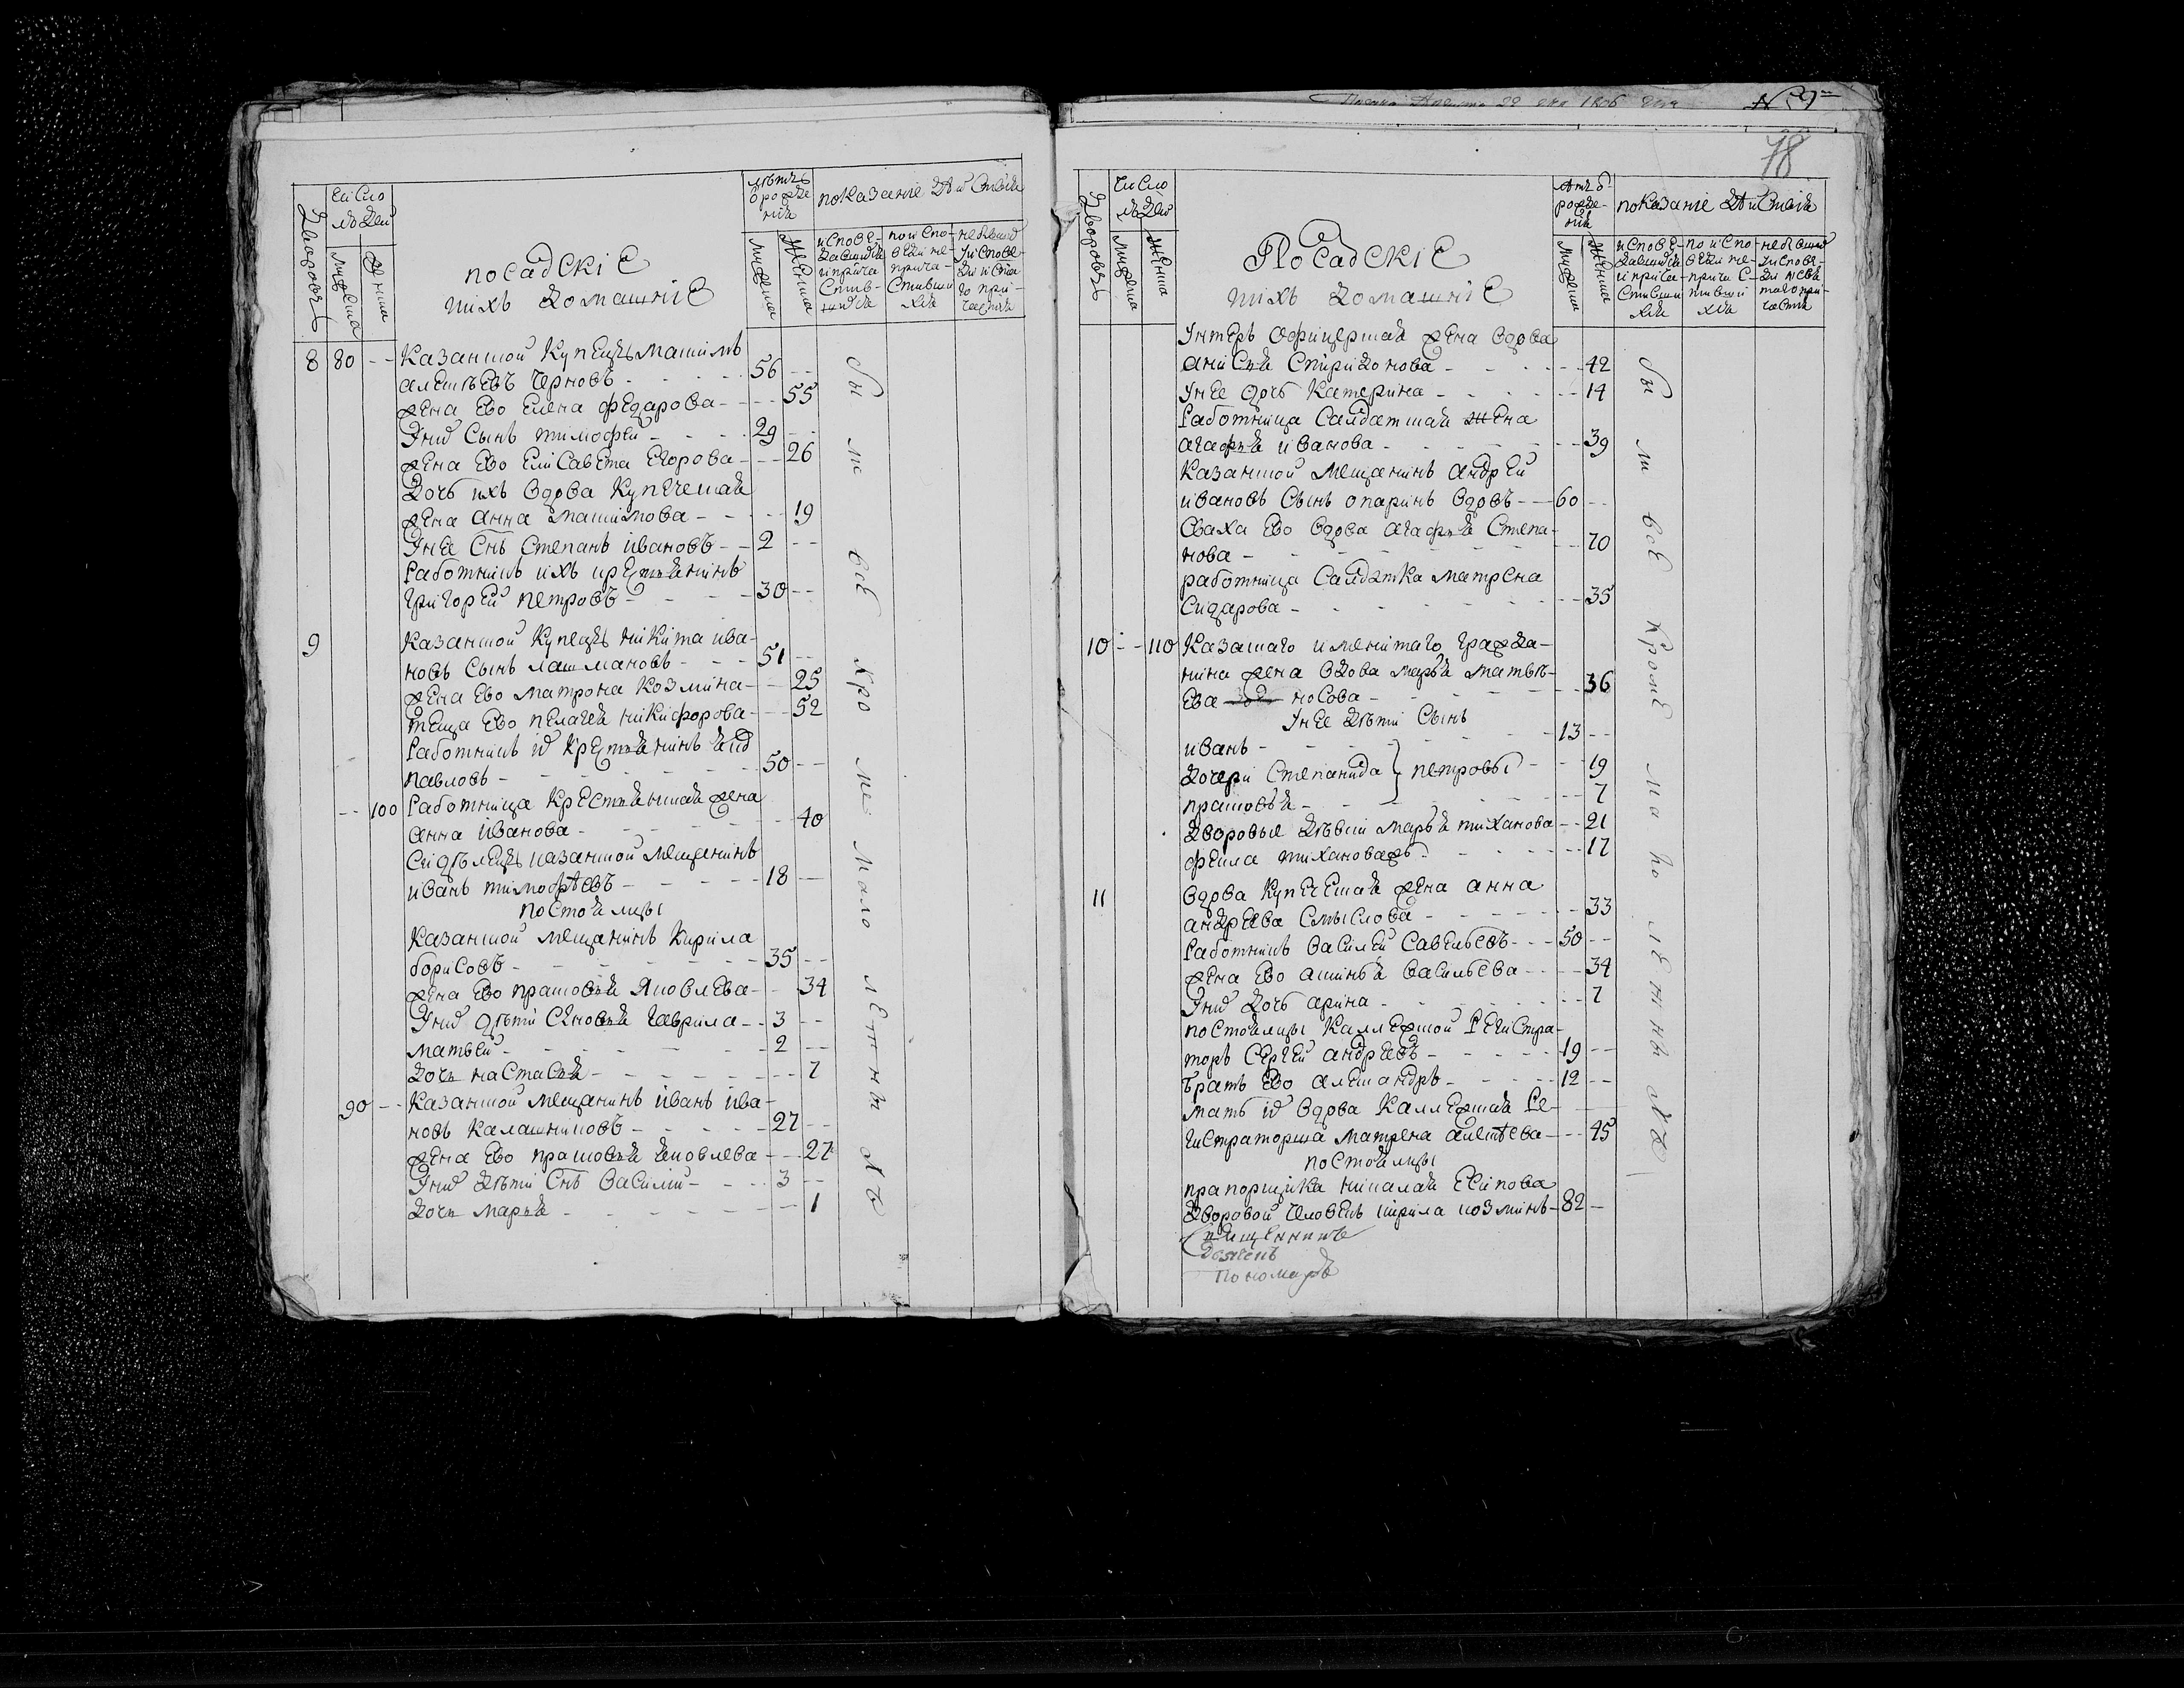 Дваровъ
число людей
мужеска
женска
посадскіе
и ихъ домашніе
лѣтъ
о рожде
нія
мужеска
женска
показаніе дѣйствія
исповѣ-
давшихся
и прича
стив-
шихся
по испо-
веди не
прича-
стивши
хся
не бывших
у испове-
ди и свя
то при-
частія
8 80 -- Казанской купецъ максимъ
алексѣевъ черновъ - - 56 --
жена ево елена федарова - -- 55
У них сынъ тимофей - - 29 --
жена ево елисавета егорова - -- 26
дочь ихъ вдова купеческая
жена анна максимова - -- 19
У нее снъ степанъ ивановъ - 2 --
работникъ ихъ крестьянинъ
григорей петровъ - 30 --
9 Казанской купецъ никита ива-
новъ сынъ лашмановъ - 51 --
жена ево матрона козмина - -- 25
теща ево пелагея никифорова - -- 52
работникъ их крестьянинъ
павловъ - 50 --
-- 100 работница крестьянская жена
анна иванова - -- 40
сиделецъ казанской мещанинъ
иванъ тимофѣевъ - 18 --
постояльцы
Казанской мещанинъ кирила
борисовъ - 35 --
жена ево прасковья яковлева - -- 34
У них дѣти сыновья гаврила - 3 --
матвей - 2 --
дочь настасья - -- 7
90 -- Казанской мещанинъ иванъ ива-
новъ калашниковъ - 27 --
жена ево прасковья яковлева - -- 27
У них дѣти снъ василий - 3 --
дочь марья - -- 1
бы ли все кро ме мало летнихъ
№ 9
78
Дворовъ
число
людей
мужеска
женска
Посадскіе
и ихъ домашніе
лѣтъ о
рожде-
нія
мужеска
женска
показаніе дѣйствія
исповѣ-
давшихся
и прича-
стивши
хся
по испо
веди не
прича с-
тивши
хся
не бывших
у исповѣ-
ди и свя
таго при-
частія
Унтеръ офицерская жена вдова
анисья спиридонова - -- 42
У нее дочь катерина - -- 14
работница салдатская жена
агафья иванова - -- 39
казанской мещанинъ андрей
ивановъ сынъ опаринъ вдовъ - 60 --
сваха ево вдова агафья степа-
нова - -- 70
работница салдатка матрена
сидарова - -- 35
10 -- 110 Казанскаго именитаго гражда-
нина жена вдова марья матвѣ-
ева носова - -- 36
У нее дѣти сынъ
иванъ - 13 --
дочери степанида } петровы - -- 19
прасковья - -- 7
дворовые дѣвки марья тиханова -- 21
фекла тиханова жъ - -- 17
11 вдова купеческая жена анна
андреева смыслова - -- 33
работникъ василей савельевъ - 50 --
жена ево аксинья васильева - -- 34
У них дочь арина - -- 7
постояльцы каллежской регистра-
торъ сергей андреевъ - 19 --
братъ ево александръ - 12 --
мать их вдова каллежская ре-
гистраторша матрена алексѣева - -- 45
постояльцы
прапорщика николая есипова
дворовой человекъ кирила козминъ - 82 --
священникъ
диаконъ
пономарь
бы ли все кроме ма ло летнихъ